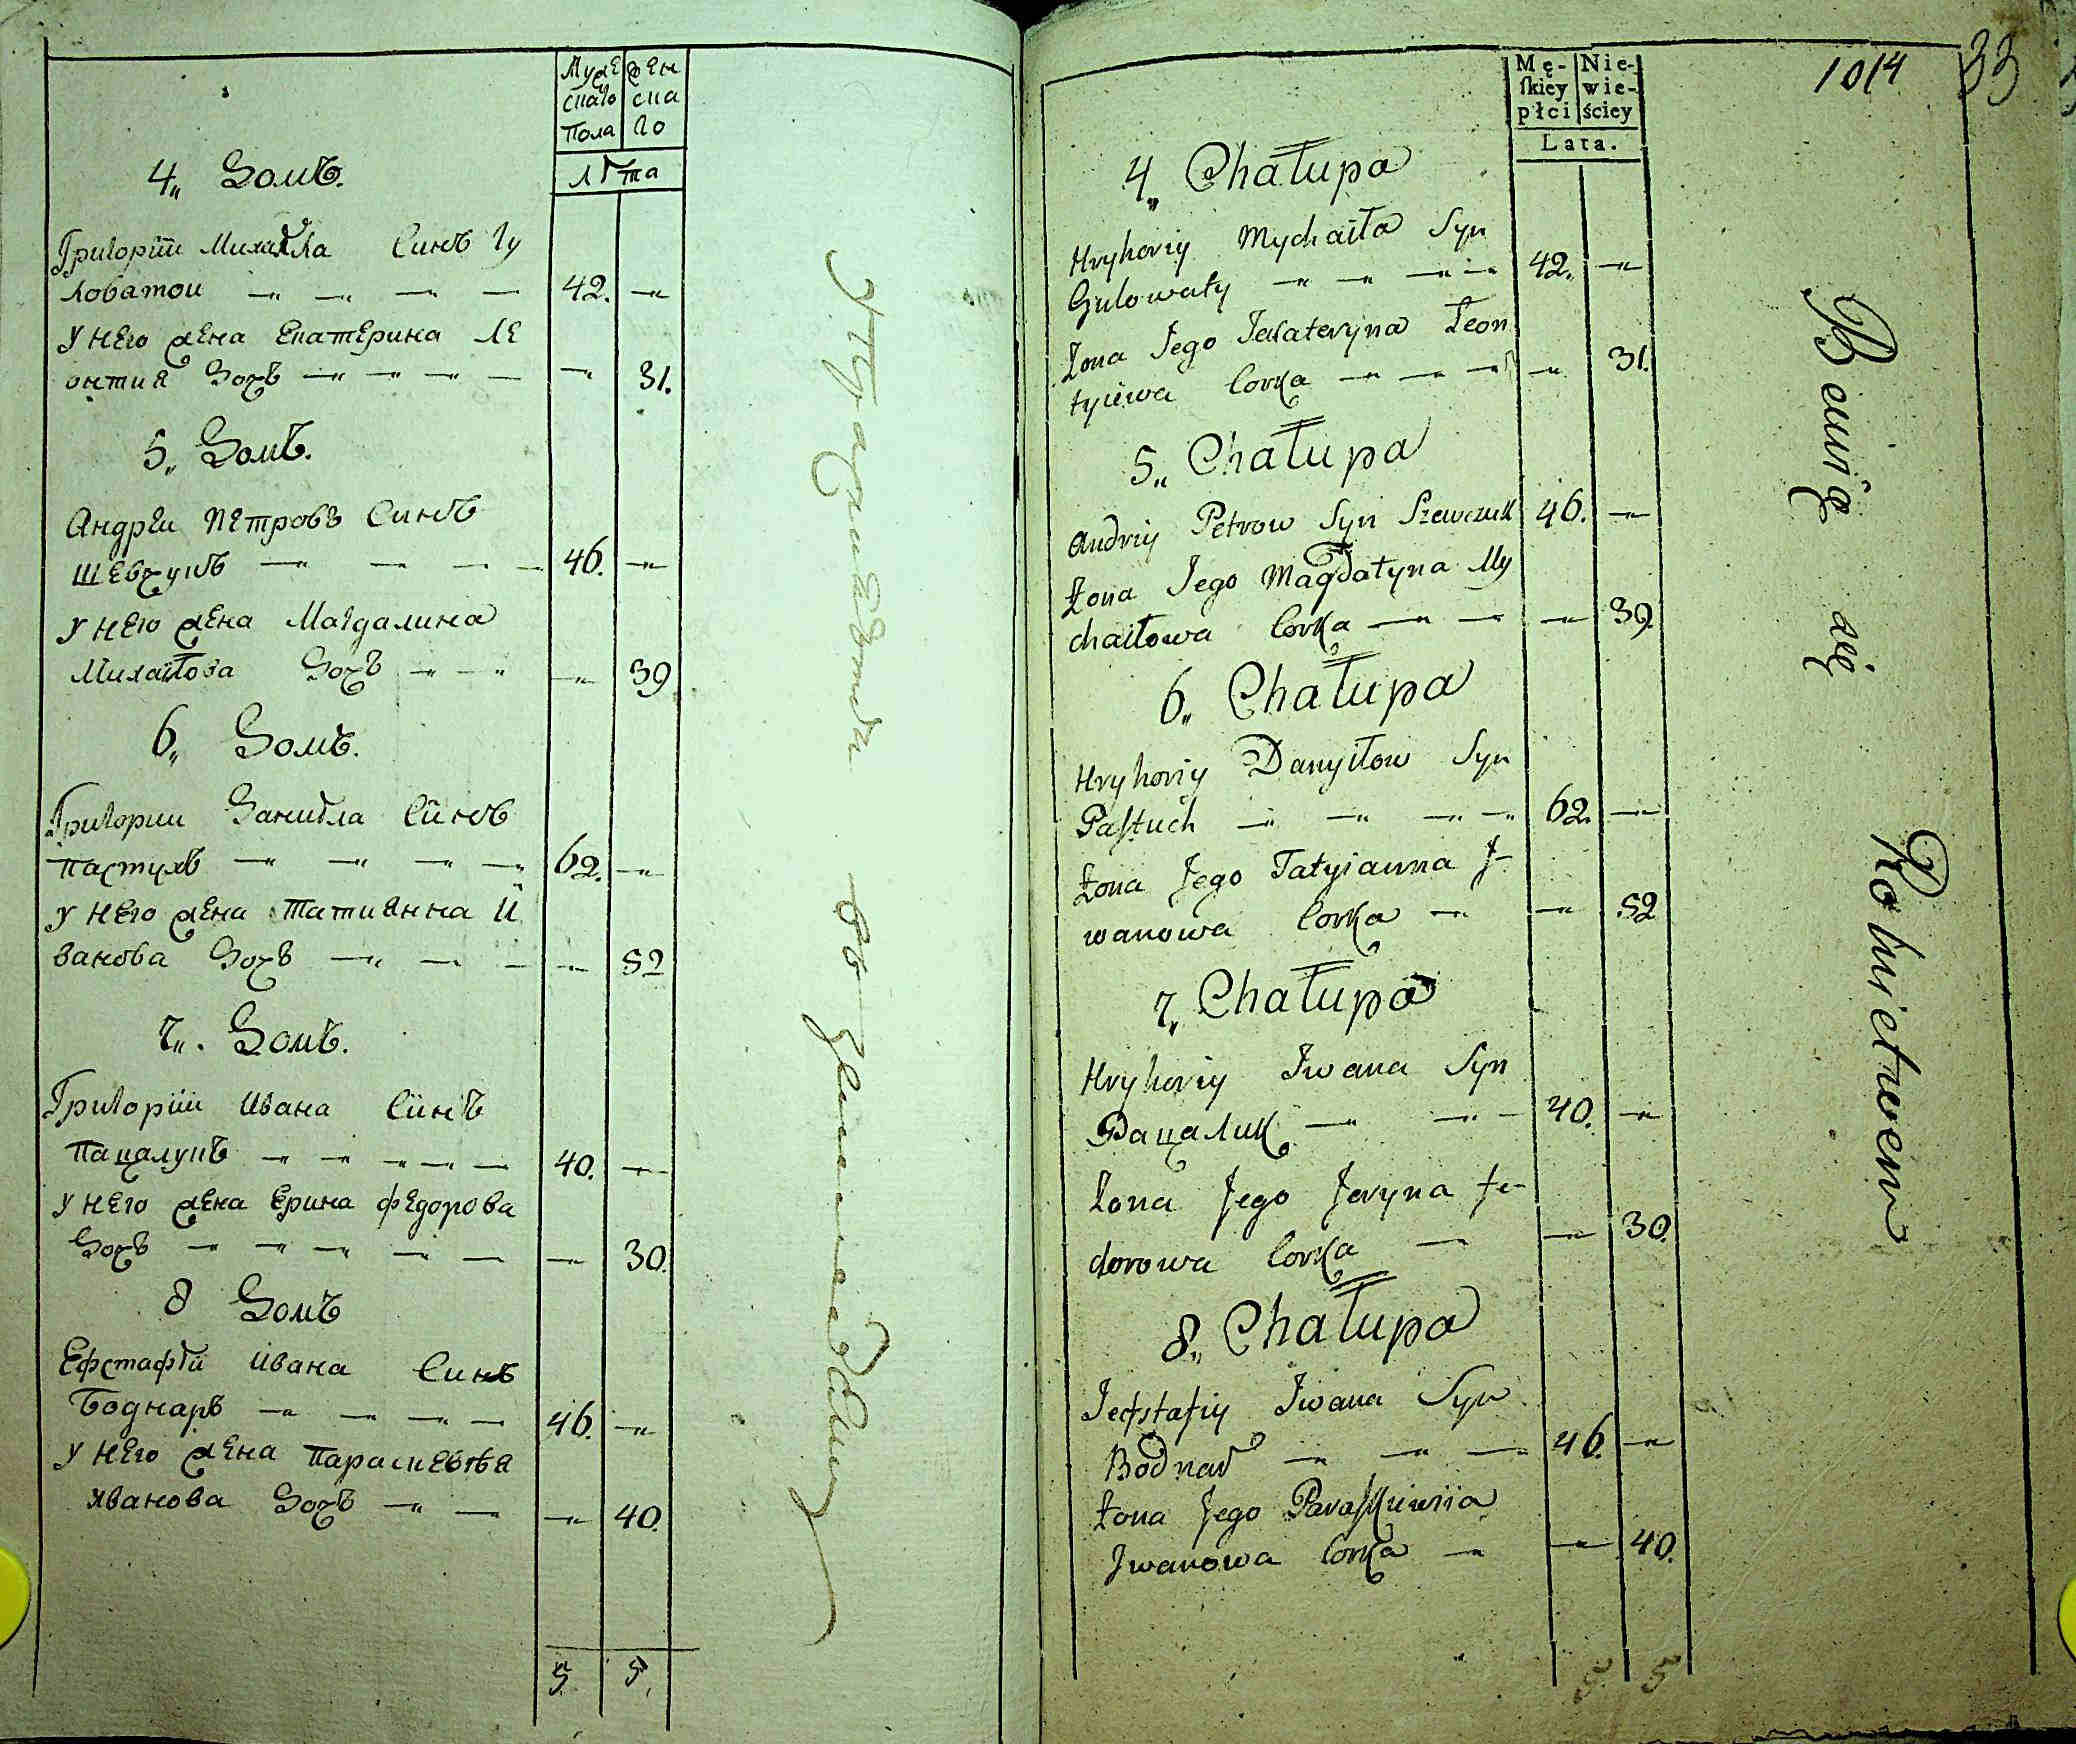 Муже
скаго
Пола
Жен
ска
го
Лѣта
4„ Домъ.
Григорій Михайла Синъ Гу
ловатои
42.
У него жена Екатерина Ле
онтия Дочъ
31.
5„ Домъ.
Андрей Петровъ Синъ
Шевчукъ
46.
У него жена Магдалина
Михайлова Дочъ
39
6„ Домъ.
Григории Данила Синъ
Пастухъ
62.
У него жена Татиянна И
ванова Дочъ
52
7„. Домъ.
Григорій Ивана Синъ
Пацалукъ
40.
У него жена Ерина Федорова
Дочъ
30.
8 Домъ
Ефстафій Ивана Синъ
Боднаръ
46.
У него жена Параскевѣя
Иванова Дочъ
40.
5, 5,
въ
1014 33
Mę-
skiey
płci
Nie-
wie-
ściey
Lata.
4„ Chałupa
Hryhoriy Mychaiła Syn
Gulowaty 42.
Żona Jego Jekateryna Leon
tyiewa Corka 31.
5„ Chałupa
Andriy Petrow Syn Szewczuk 46.
Żona Jego Magdałyna My
chaiłowa Corka 39.
6„ Chałupa
Hryhoriy Danyłow Syn
Pastuch 62.
Żona Jego Tatyianna J-
wanowa Corka 52
7„ Chałupa
Hryhoriy Jwana Syn
40.
Żona Jego Jeryna Fe-
dorowa Corka 30.
8„ Chałupa
Jefstafiy Jwana Syn
Bodnar 46.
Żona Jego Paraskiewiia
Jwanowa Corka 40.
5 5
się